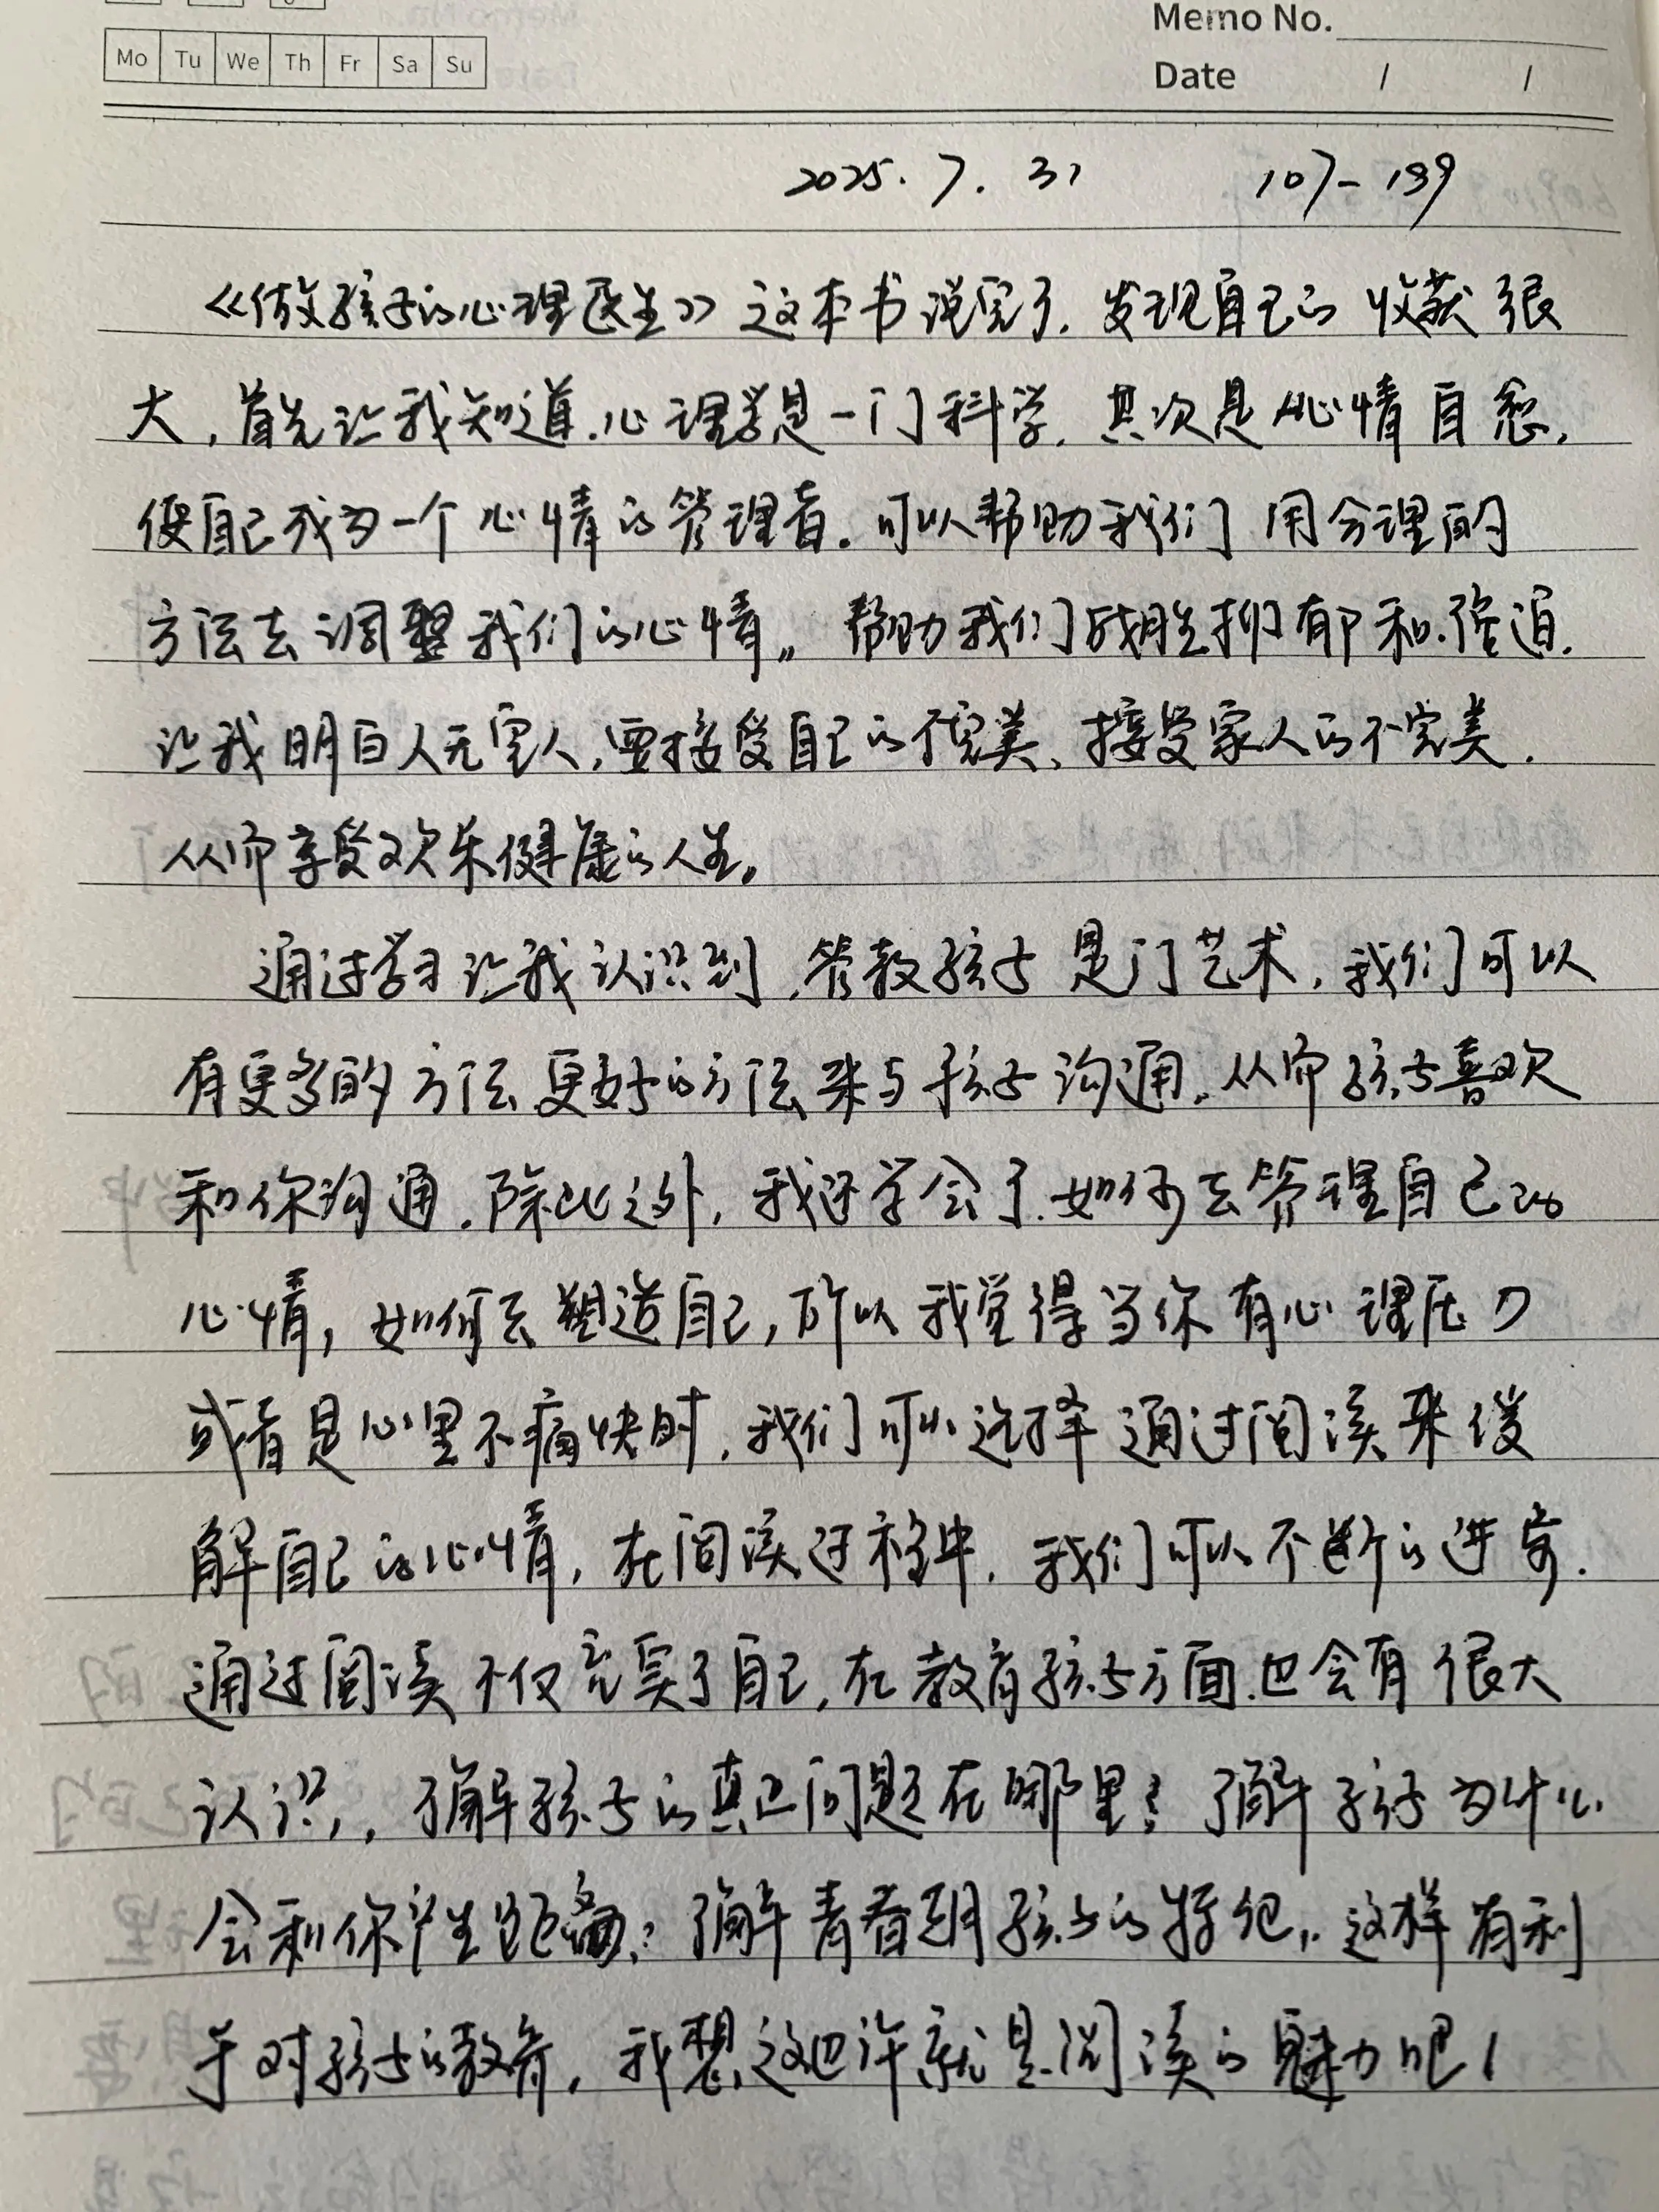 Memo No.
Mo Tu We Th Fr Sa Su
Date / /
2025.7.31 107-199
《做孩子的心理医生》这本书说完了,发现自己的收获很
大,首先让我知道,心理学是一门科学,其次是心情自愈,
使自己成为一个心情的管理者。可以帮助我们用合理的
方法去调整我们的心情。帮助我们战胜抑郁和强迫.
让我明白人无完人,要接受自己的不完美、接受家人的不完美.
从而享受欢乐健康的人生。
通过学习让我认识到,管教孩子是门艺术,我们可以
有更多的方法更好的方法来与孩子沟通,从而孩子喜欢
和你沟通,除此之外,我还学会了如何去管理自己的
心情,如何去塑造自己,所以我觉得当你有心理压力
或者是心里不痛快时,我们可以选择通过阅读来缓
解自己的心情,在阅读过程中,我们可以不断的进步.
通过阅读不仅充实了自己,在教育孩子方面也会有很大
认识,,了解孩子的真正问题在哪里?了解孩子为什么
会和你产生距离?了解青春期孩子的特征,这样有利
于对孩子的教育,我想这也许就是阅读的魅力吧!